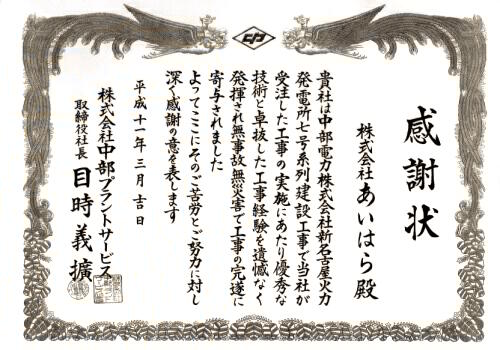 感謝状
株式会社 あいはら 殿
貴社は中部電力株式会社新名古屋火力
発電所七号系列建設工事で当社が
受注した工事の実施にあたり優秀な
技術と卓抜した工事経験を遺憾なく
発揮され無事故無災害で工事の完遂に
寄与されました
よってここにそのご苦労とご努力に対し
深く感謝の意を表します
平成十一年三月吉日
株式会社中部プラントサービス
取締役社長 目時義擴